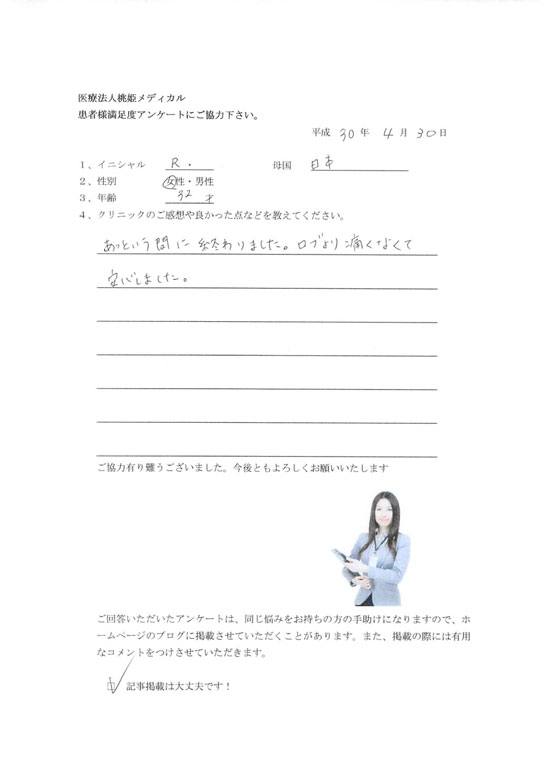 医療法人桃姫メディカル
患者様満足度アンケートにご協力下さい。
平成 30 年 4 月 30 日
1、イニシャル R. 母国 日本
2、性別 女性・男性
3、年齢 32 才
4、クリニックのご感想や良かった点などを教えてください。
あっという間に終わりました。口ブより痛くなくて
安心しました。
ご協力有り難うございました。今後ともよろしくお願いいたします
ご回答いただいたアンケートは、同じ悩みをお持ちの方の手助けになりますので、ホ
ームページのブログに掲載させていただくことがあります。また、掲載の際には有用
なコメントをつけさせていただきます。
記事掲載は大丈夫です！